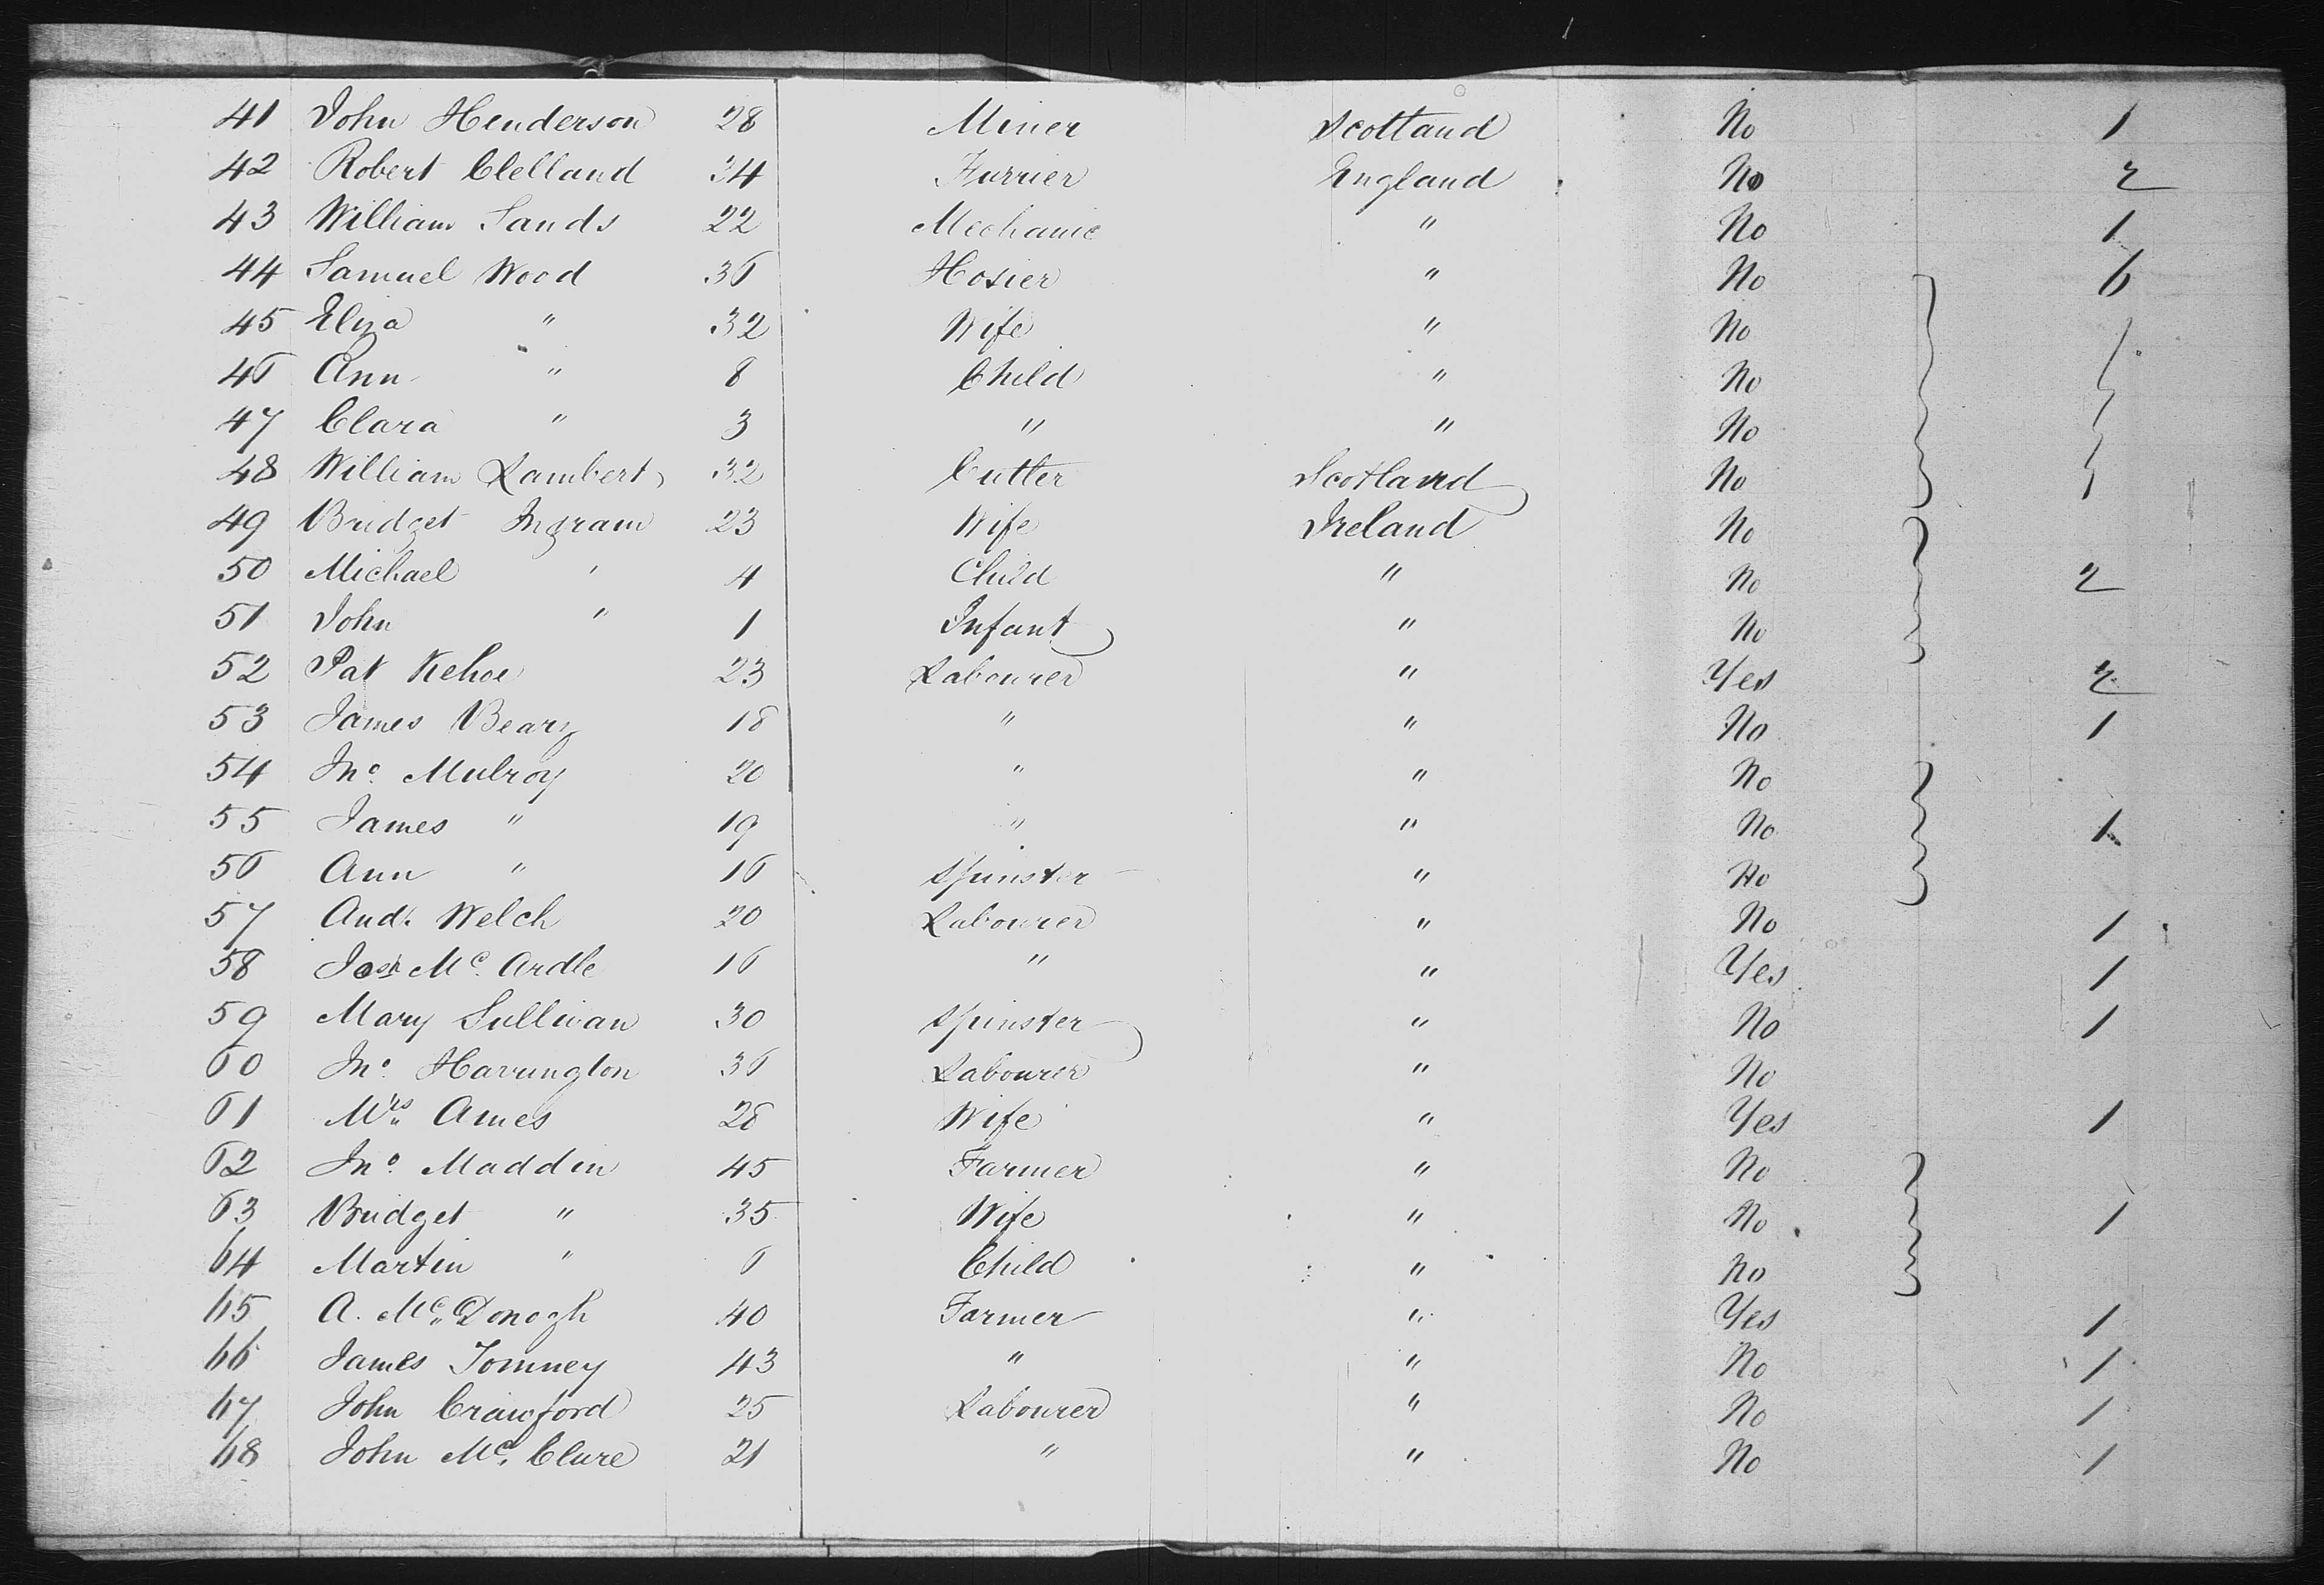 41 John Henderson 28 Miner Scotland No 1
42 Robert Clelland 34 Furrier England No 2
43 William Sands 22 Mechanic " No 1
44 Samuel Wood 36 Hosier " No 6
45 Eliza " 32 Wife " No
46 Ann " 8 Child " No
47 Clara " 3 " " No
48 William Lambert 32 Cutter Scotland No
49 Bridget Ingram 23 Wife Ireland No
50 Michael " 4 Child " No 2
51 John " 1 Infant " No
52 Pat Kehoe 23 Labourer " Yes 2
53 James Beary 18 " " No 1
54 Jno. Mulroy 20 " " No
55 James " 19 " " No 1
56 Ann " 16 Spinster " No
57 Andr. Welch 20 Labourer " No 1
58 Mc. Ardle 16 " " Yes 1
59 Mary Sullivan 30 Spinster " No 1
60 Jno. Harrington 36 Labourer " No
61 Mrs. Ames 28 Wife " Yes 1
62 Jno. Maddin 45 Farmer " No
63 Bridget " 35 Wife " No 1
64 Martin " 6 Child " No
65 A. Mc. Donogh 40 Farmer " Yes 1
66 James Tomney 43 " " No 1
67 John Crawford 25 Labourer " No 1
68 John Mc. Clure 21 " " No 1